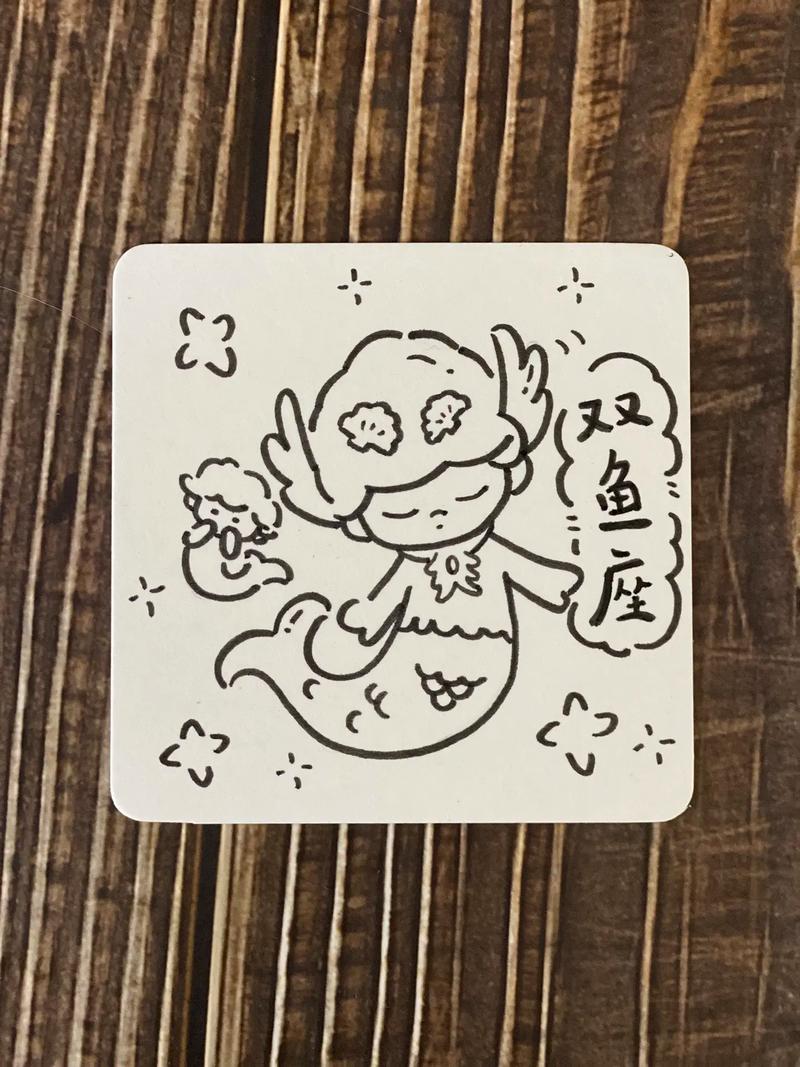 双鱼座